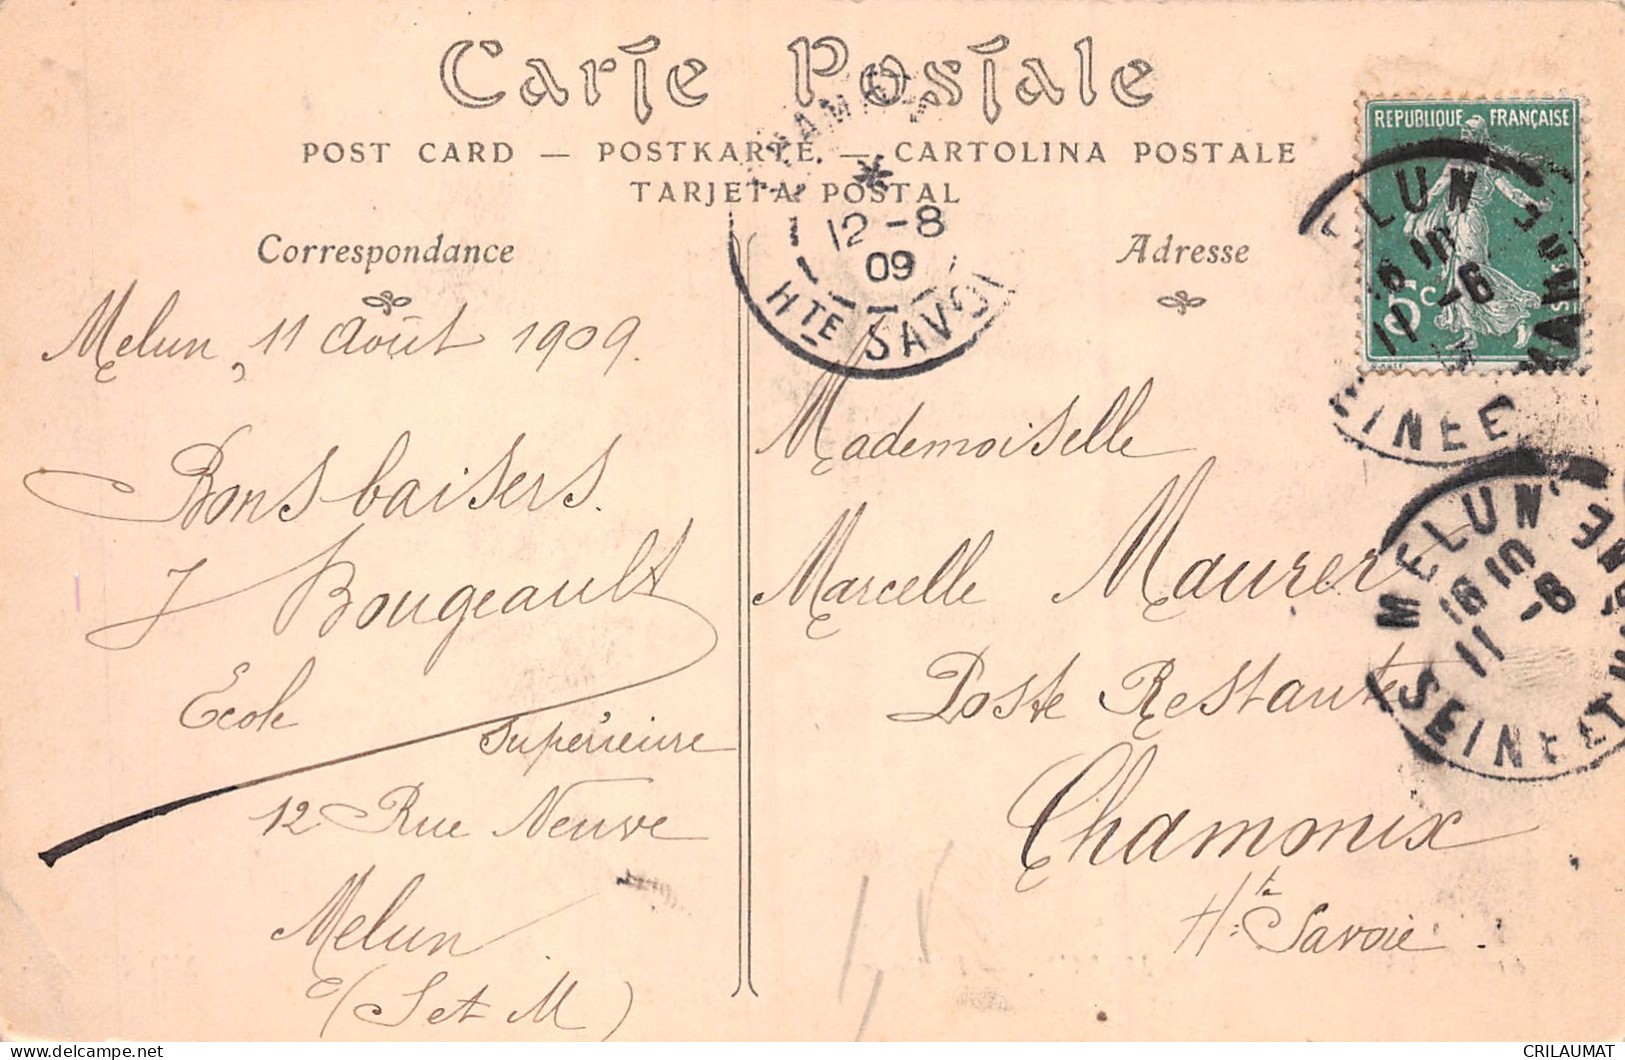 Carte Postale
POST CARD — POSTKARTE. — CARTOLINA POSTALE
TARJETA POSTAL
Correspondance
Melun, 11 Août 1909.
Bons baisers.
J Bougeault
École
Supérieure
12 Rue Neuve
Melun
(S et M)
12 -8
09
HTE SAVOI
Adresse
Mademoiselle
Marcelle Maurer
Poste Restante
Chamonix
Hte Savoie.
REPUBLIQUE FRANÇAISE
5c
ELUN
16 10
11 -8
EINE E
MELUN
16 10
11 -8
SEINE ET M
CRILAUMAT